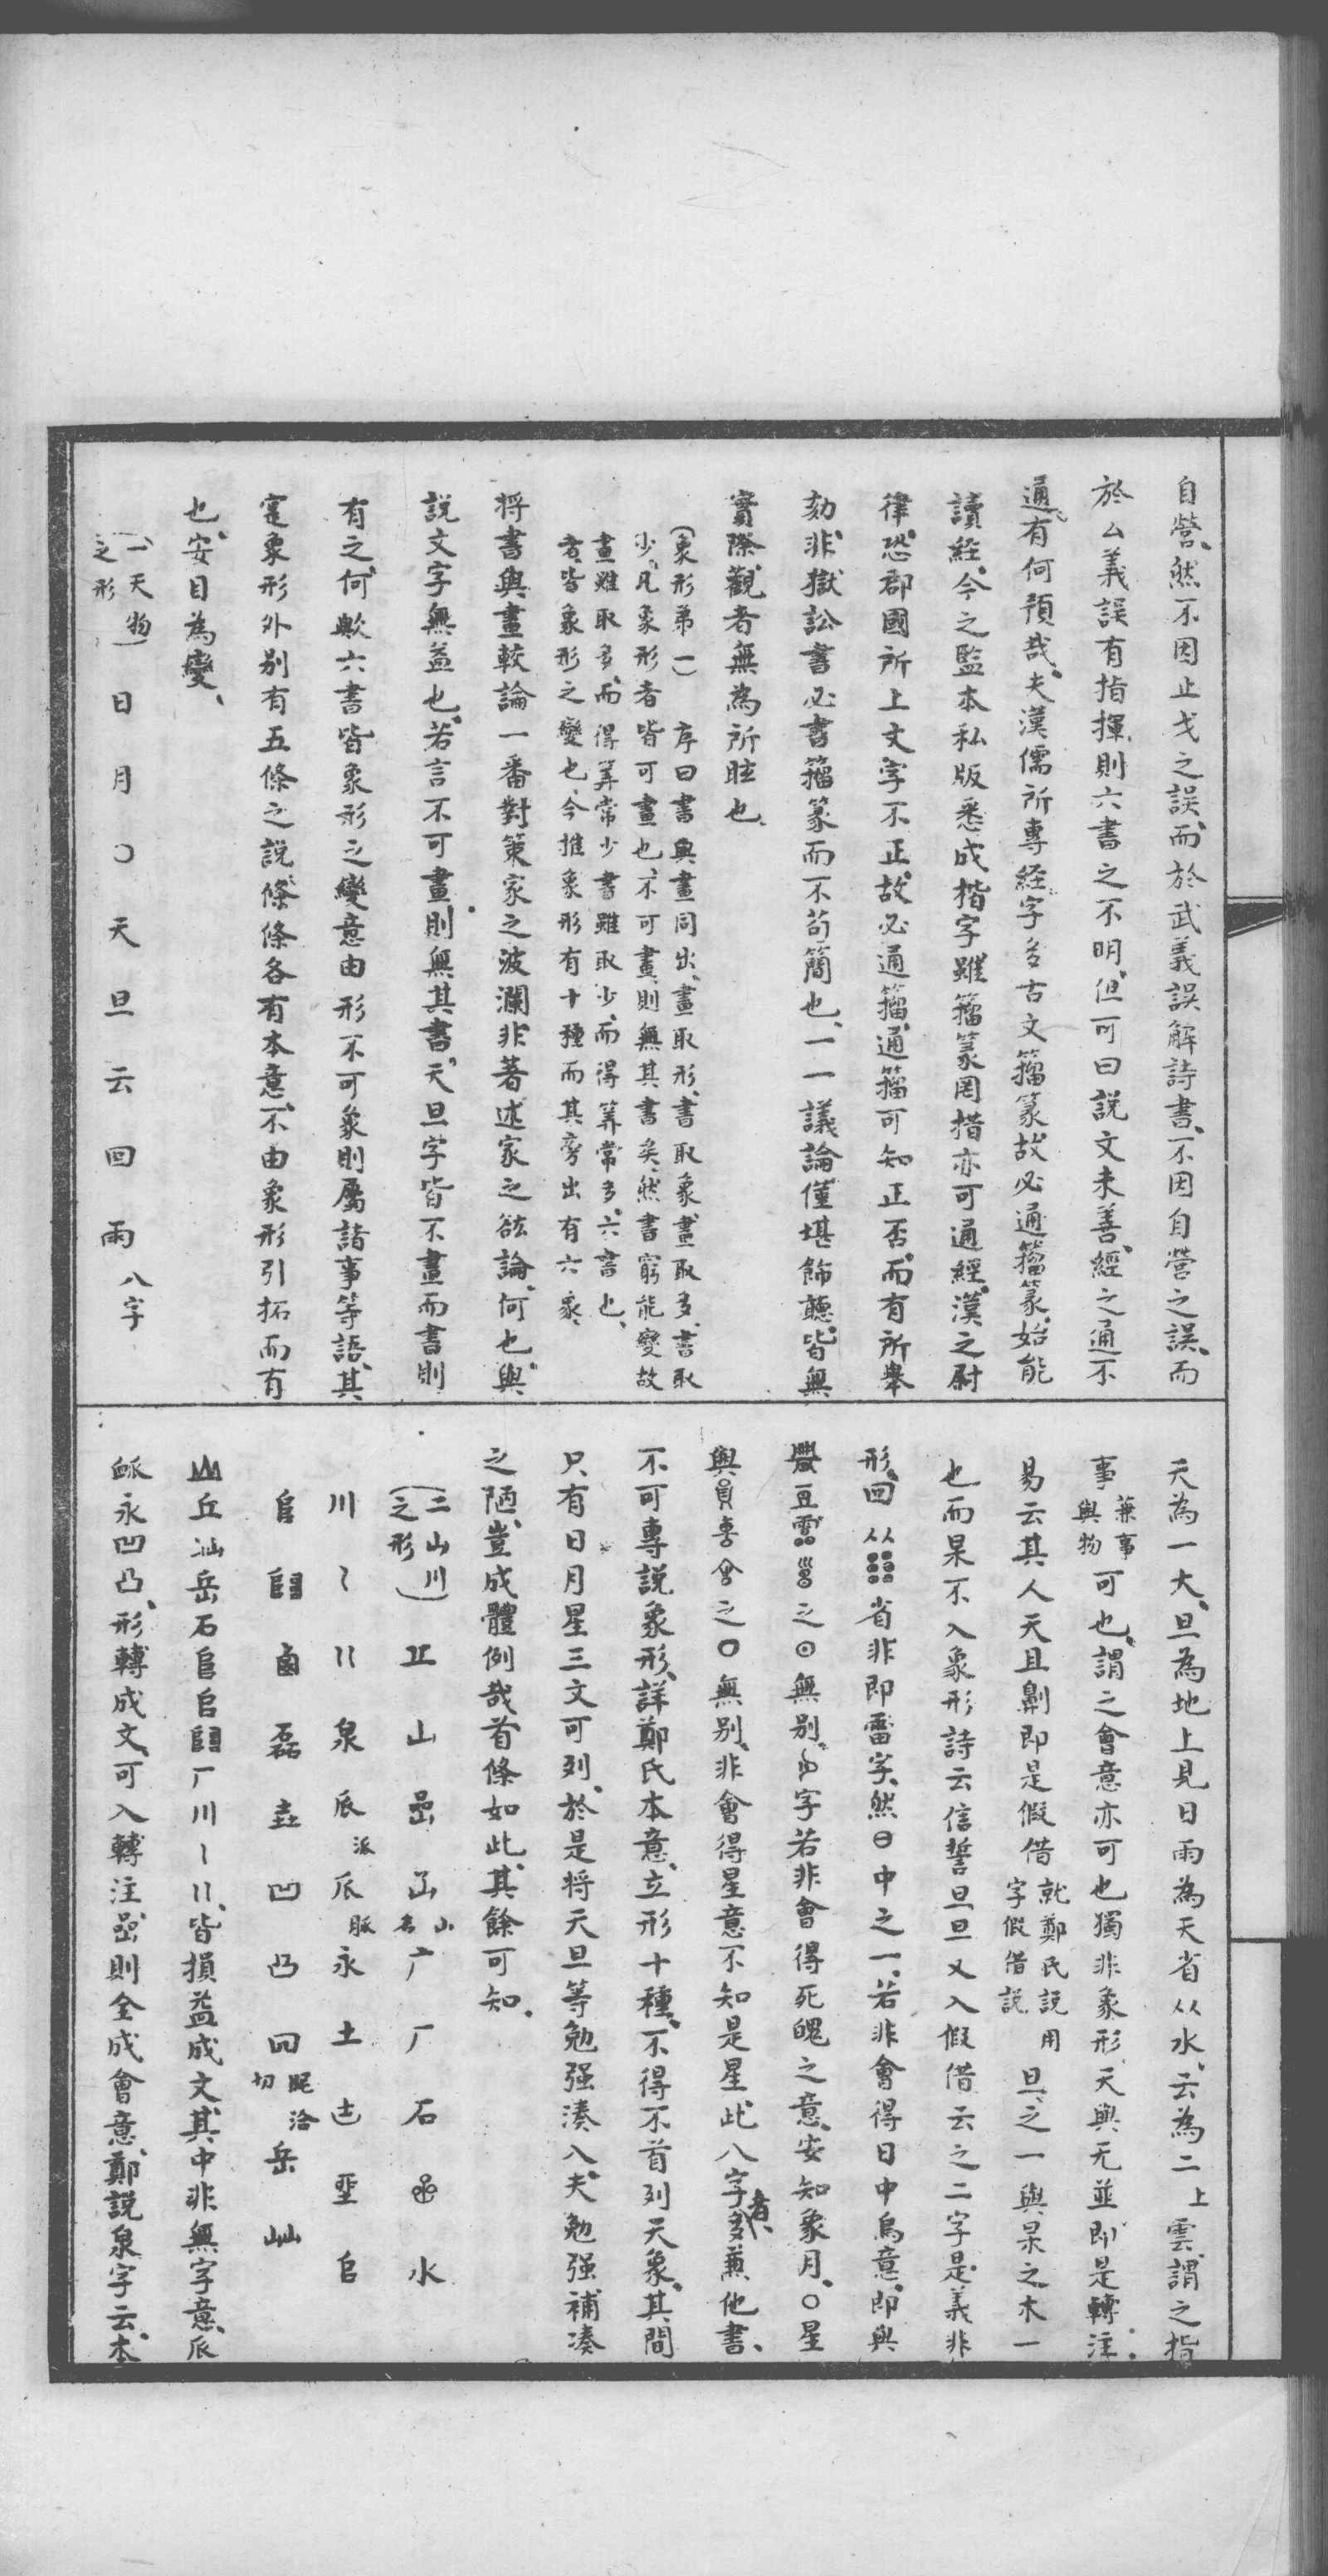 自營、然不因止戈之誤、而於武義誤解詩書、不因自營之誤、而
於厶義誤有指揮、則六書之不明、但可曰説文未善、經之通不
通、有何預哉、夫漢儒所專經、字多古文籀篆、故必通籀篆、始能
讀經、今之監本私版悉成楷字、雖籀篆罔措、亦可通經、漢之尉
律、恐郡國所上文字不正、故必通籀、通籀可知正否、而有所舉
劾、非獄訟書必書籀篆而不苟簡也、一一議論僅堪飾聽、皆無
實際、觀者無為所眩也、
（象形弟一）　序曰書與畫同出、畫取形、書取象、畫取多、書取
少、凡象形者皆可畫也、不可畫、則無其書矣、然書窮能變、故
畫雖取多、而得筭常少、書雖取少、而得筭常多、六書也、
者、皆象形之變也、今推象形有十種、而其旁出有六象、
将書與畫較論一番、對策家之波瀾、非著述家之𧮰論、何也、與
説文字無益也、若言不可畫則無其書、天旦字皆不畫而書則
有之、何歟、六書皆象形之變、意由形不可象則屬諸事等語、其
寔象形外别有五條之説、條條各有本意、不由象形引拓而有
也、安目為變、
（一天物之形）　日　月　〇　天　旦　云　回　雨　八字
天為一大、旦為地上見日、雨為天省从水、云為二上雲、謂之指
事兼事與物可也、謂之會意亦可也、獨非象形、天與无並即是轉注、
易云其人天且劓即是假借就鄭氏説用字假借説旦之一與杲之木一
也、而杲不入象形、詩云信誓旦旦又入假借、云之二字是義非
形、回从𤳳省非即雷字、然日中之一、若非會得日中烏意、即與
豐豆靁𤲞之⊙無别、𠁩字若非會得死魄之意、安知象月、〇星
與員𠧪㑹之〇無别、非會得星意不知是星、此八字者、多兼他書、
不可專説象形、詳鄭氏本意、立形十種、不得不首列天象、其間
只有日月星三文可列、於是将天旦等勉强湊入、夫勉强補湊
之陋、豈成體例哉、首條如此、其餘可知、
（二山川之形）　𠀉　山　嵒　屵　广　厂　石　𠧪　水
川　𡿨　巜　泉　𠂢派　𠂢脈　永　土　𡉚　坙　𠂤
𨸏　𨺅　鹵　磊　坴　凹　凸　回　岳　屾
山丘屾岳石𨸏𠂤𨺅厂川𡿨巜、皆損益成文、其中非無字意、𠂢
𠂢永凹凸、形轉成文、可入轉注、嵒則全成會意、鄭説泉字云、本